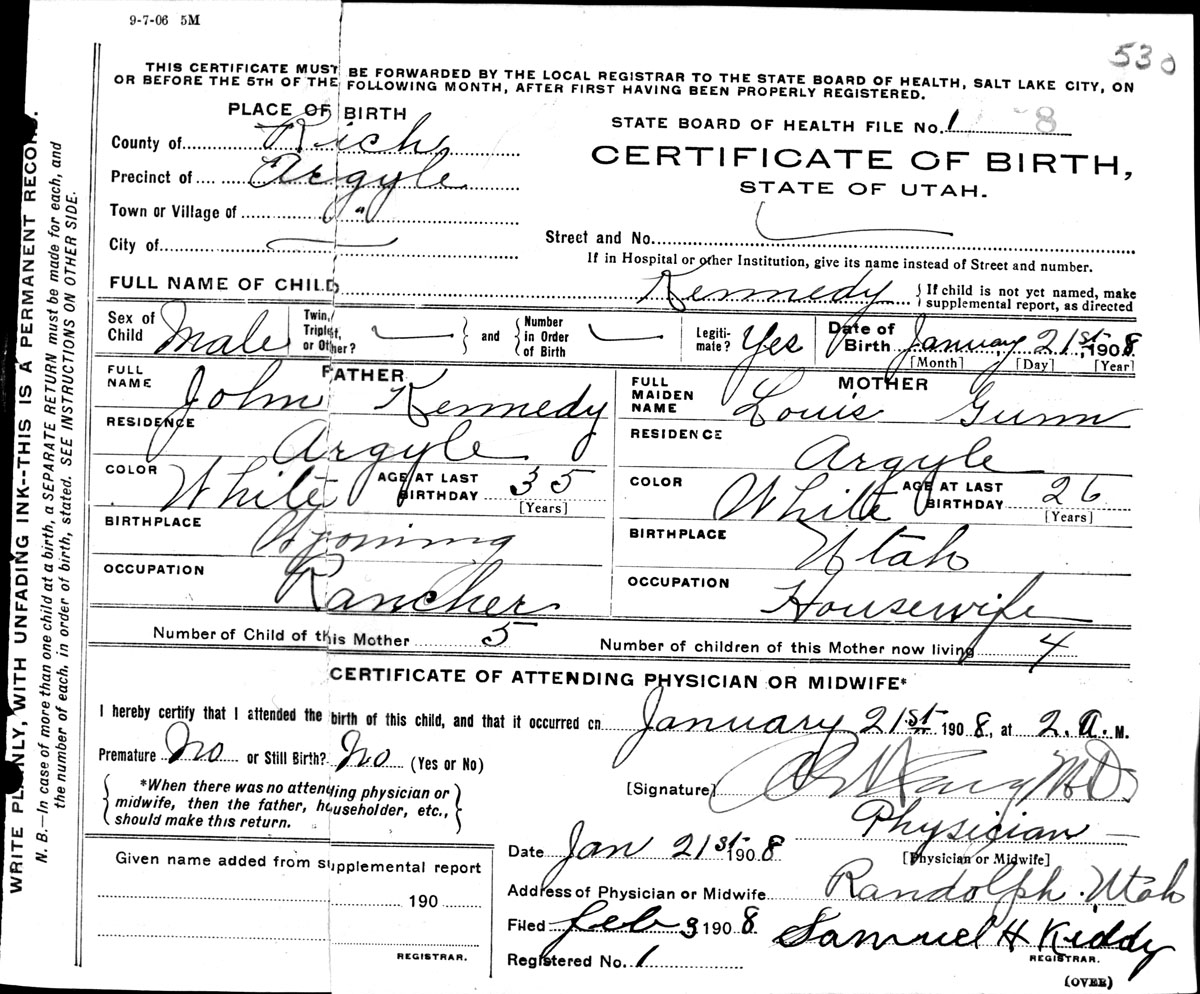 9-7-06 5M
530
THIS CERTIFICATE MUST BE FORWARDED BY THE LOCAL REGISTRAR TO THE STATE BOARD OF HEALTH, SALT LAKE CITY, ON
OR BEFORE THE 5TH OF THE FOLLOWING MONTH, AFTER FIRST HAVING BEEN PROPERLY REGISTERED.
PLACE OF BIRTH
STATE BOARD OF HEALTH FILE No. 1 8
County of Rich
CERTIFICATE OF BIRTH,
Precinct of Argyle
STATE OF UTAH.
Town or Village of "
City of
Street and No.
If in Hospital or other Institution, give its name instead of Street and number.
FULL NAME OF CHILD Kennedy { If child is not yet named, make supplemental report, as directed
Sex of Child Male Twin, Triplet, or Other? } and { Number in Order of Birth Legiti-mate? Yes Date of Birth January 21st, 1908
[Month] [Day] [Year]
FATHER
MOTHER
FULL NAME John Kennedy
FULL MAIDEN NAME Louis Gunn
RESIDENCE Argyle
RESIDENCE Argyle
COLOR White AGE AT LAST BIRTHDAY 35 [Years]
COLOR White AGE AT LAST BIRTHDAY 26 [Years]
BIRTHPLACE Wyoming
BIRTHPLACE Utah
OCCUPATION Rancher
OCCUPATION Housewife
Number of Child of this Mother 5 Number of children of this Mother now living 4
CERTIFICATE OF ATTENDING PHYSICIAN OR MIDWIFE*
I hereby certify that I attended the birth of this child, and that it occurred on January 21st 1908, at 2. A. M.
Premature No or Still Birth? No (Yes or No)
*When there was no attending physician or
midwife, then the father, householder, etc.,
should make this return.
[Signature] M.D.
Physician
[Physician or Midwife]
Date Jan 21st 1908
Address of Physician or Midwife Randolph Utah
Filed Feb 3 1908 Samuel H Kiddy
REGISTRAR.
Registered No. 1
(OVER)
Given name added from supplemental report
190
REGISTRAR.
WRITE PLAINLY, WITH UNFADING INK--THIS IS A PERMANENT RECORD.
N. B.—In case of more than one child at a birth, a SEPARATE RETURN must be made for each, and
the number of each, in order of birth, stated. SEE INSTRUCTIONS ON OTHER SIDE.